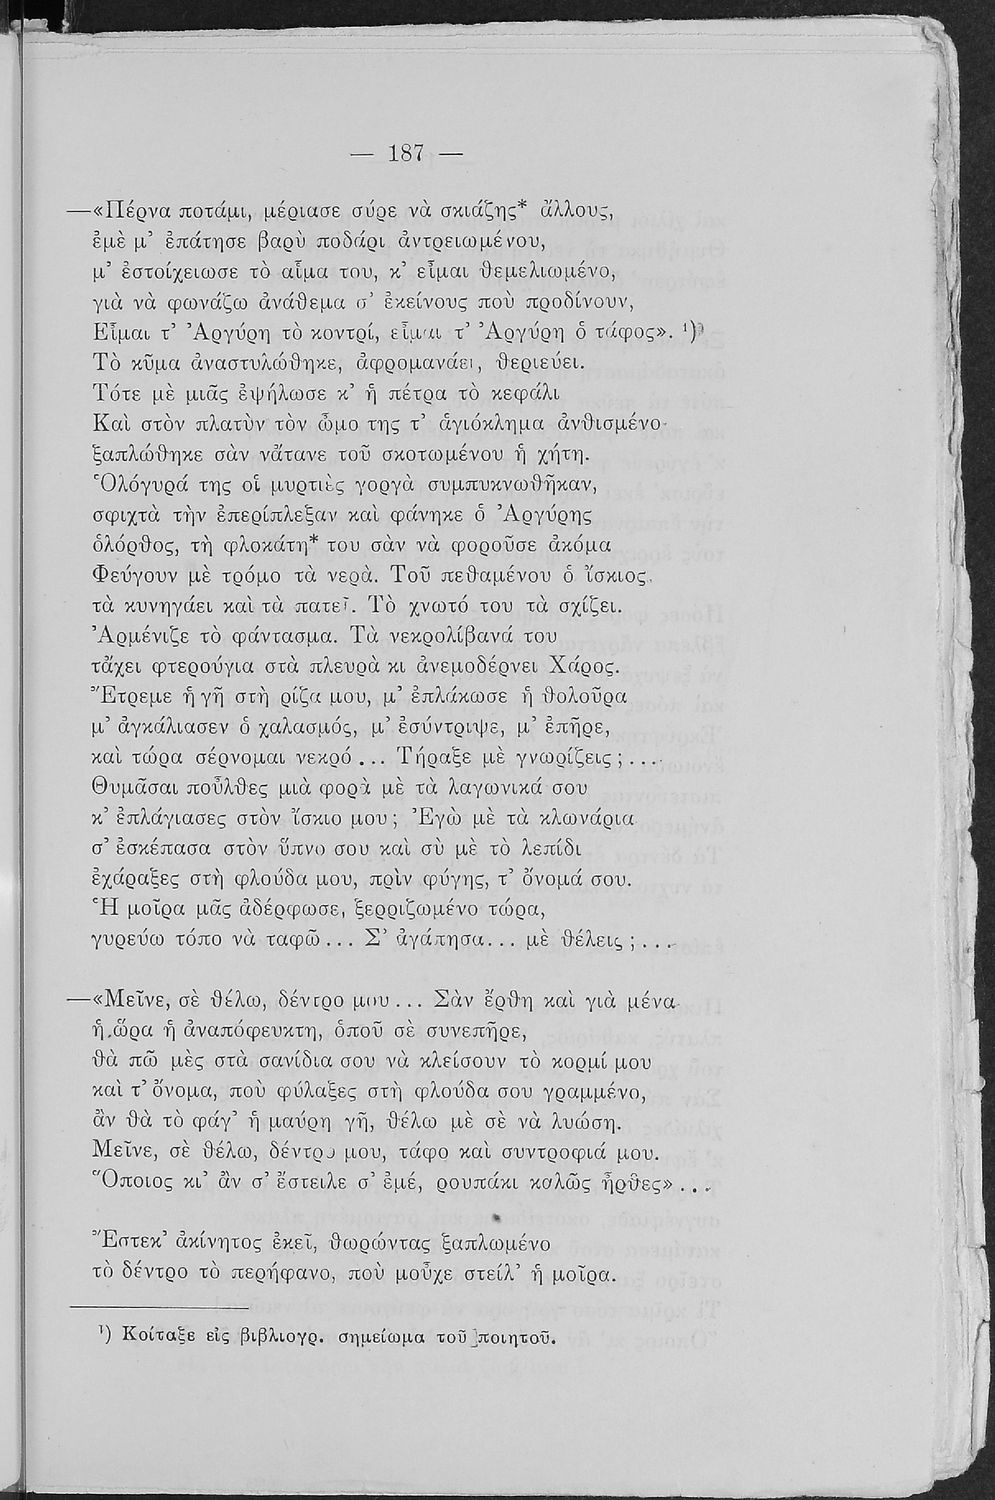 — 187 —
—«Πέρνα ποτάμι, μέριασε σύρε νὰ σκιάζῃς* ἄλλους,
ἐμὲ μ’ ἐπάτησε βαρὺ ποδάρι ἀντρειωμένου,
μ’ ἐστοίχειωσε τὸ αἷμα του, κ’ εἶμαι θεμελιωμένο,
γιὰ νὰ φωνάζω ἀνάθεμα σ’ ἐκείνους ποὺ προδίνουν,
Εἶμαι τ’ Ἀργύρη τὸ κοντρί, εἶμαι τ’ Ἀργύρη ὁ τάφος». ¹)
Τὸ κῦμα ἀναστυλώθηκε, ἀφρομανάει, θεριεύει.
Τότε μὲ μιᾶς ἐψήλωσε κ’ ἡ πέτρα τὸ κεφάλι
Καὶ στὸν πλατὺν τὸν ὦμο της τ’ ἁγιόκλημα ἀνθισμένο
ξαπλώθηκε σὰν νἄτανε τοῦ σκοτωμένου ἡ χήτη.
Ὁλόγυρά της οἱ μυρτιὲς γοργὰ συμπυκνωθῆκαν,
σφιχτὰ τὴν ἐπερίπλεξαν καὶ φάνηκε ὁ Ἀργύρης
ὁλόρθος, τὴ φλοκάτη* του σὰν νὰ φοροῦσε ἀκόμα
Φεύγουν μὲ τρόμο τὰ νερὰ. Τοῦ πεθαμένου ὁ ἴσκιος,
τὰ κυνηγάει καὶ τὰ πατεῖ. Τὸ χνωτό του τὰ σχίζει.
Ἀρμένιζε τὸ φάντασμα. Τὰ νεκρολίβανά του
τἄχει φτερούγια στὰ πλευρὰ κι ἀνεμοδέρνει Χάρος.
Ἔτρεμε ἡ γῆ στὴ ρίζα μου, μ’ ἐπλάκωσε ἡ θολοῦρα
μ’ ἀγκάλιασεν ὁ χαλασμός, μ’ ἐσύντριψε, μ’ ἐπῆρε,
καὶ τώρα σέρνομαι νεκρό... Τήραξε μὲ γνωρίζεις;....
Θυμᾶσαι ποὖλθες μιὰ φορὰ μὲ τὰ λαγωνικά σου
κ’ ἐπλάγιασες στὸν ἴσκιο μου; Ἐγὼ μὲ τὰ κλωνάρια
σ’ ἐσκέπασα στὸν ὕπνο σου καὶ σὺ μὲ τὸ λεπίδι
ἐχάραξες στὴ φλούδα μου, πρὶν φύγῃς, τ’ ὄνομά σου.
Ἡ μοῖρα μᾶς ἀδέρφωσε, ξερριζωμένο τώρα,
γυρεύω τόπο νὰ ταφῶ... Σ’ ἀγάπησα... μὲ θέλεις;....

—«Μεῖνε, σὲ θέλω, δέντρο μου... Σὰν ἔρθῃ καὶ γιὰ μένα
ἡ ὥρα ἡ ἀναπόφευκτη, ὁποῦ σὲ συνεπῆρε,
θὰ πῶ μὲς στὰ σανίδια σου νὰ κλείσουν τὸ κορμί μου
καὶ τ’ ὄνομα, ποὺ φύλαξες στὴ φλούδα σου γραμμένο,
ἂν θὰ τὸ φάγ’ ἡ μαύρη γῆ, θέλω μὲ σὲ νὰ λυώσῃ.
Μεῖνε, σὲ θέλω, δέντρο μου, τάφο καὶ συντροφιά μου.
Ὅποιος κι’ ἂν σ’ ἔστειλε σ’ ἐμέ, ρουπάκι καλῶς ἦρθες»...

Ἔστεκ’ ἀκίνητος ἐκεῖ, θωρώντας ξαπλωμένο
τὸ δέντρο τὸ περήφανο, ποὺ μοὖχε στείλ’ ἡ μοῖρα.
¹) Κοίταξε εἰς βιβλιογρ. σημείωμα τοῦ ποιητοῦ.